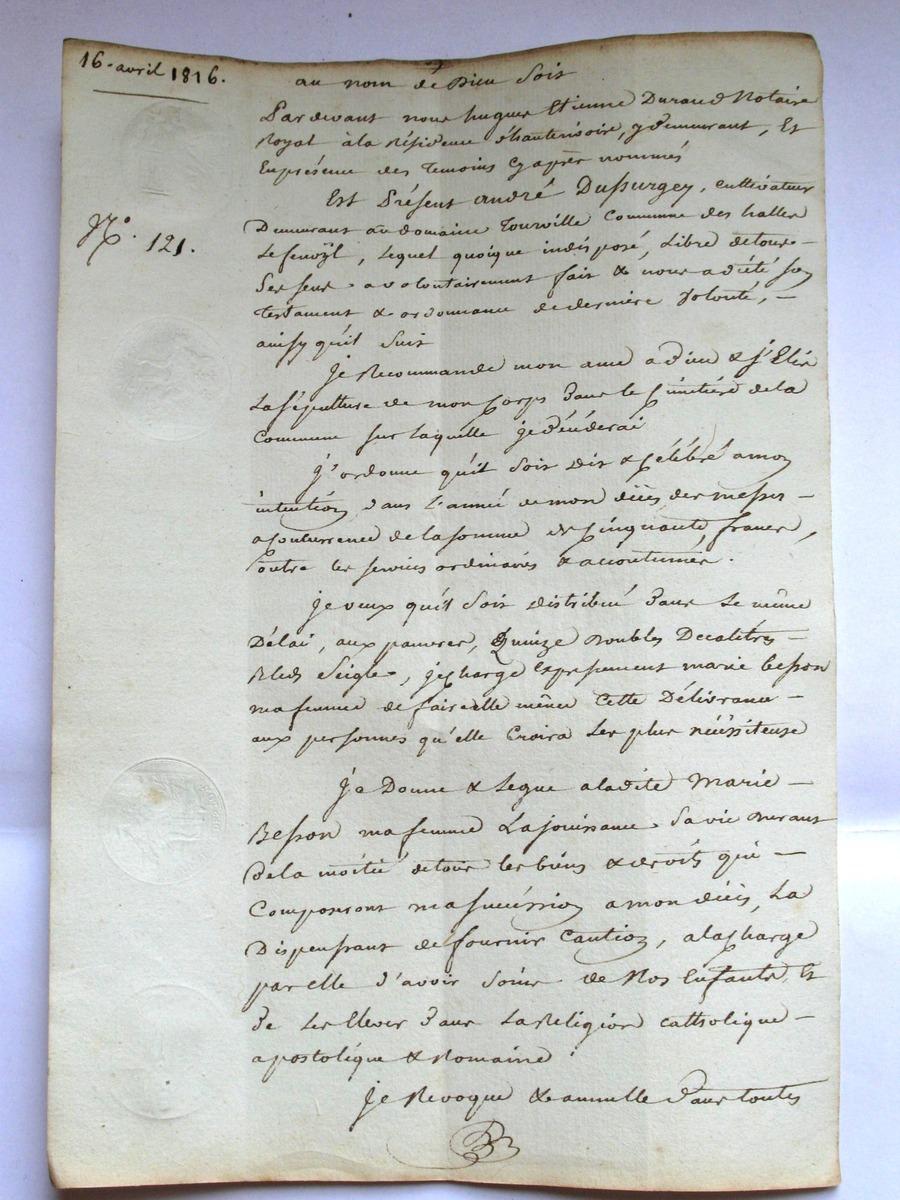 16. avril 1816.
au nom de Dieu soit
Pardevant nous hugues Etienne Durand Notaire
Royal à la Résidence , y demeurant, Et
En présence des temoins Cy après nommés
Est Présent andré Dussurgey, cultivateur
Demeurant au domaine Tourville Commune des halles
Le fenoÿl, lequel quoique indisposé, Libre de tous
Ses sens a volontairement fait & nous a dicté son
testament & ordonnance de dernière volonté,
ainsy qu'il suit
N.° 121.
je Recommande mon ame a dieu & j'Elis
La sépulture de mon Corps dans le Cimitière de la
Commune sur laquélle je décéderai
J'ordonne qu'il soit dit & Célébré a mon
intention dans l'année de mon décès des messes
a Concurrence de la somme de Cinquante francs,
outre les services ordinaires & accoutumés.
je veux qu'il soit distribué dans le même
Délai, aux pauvres, Quinze Doubles Decalitres
Bled Seigle, je charge Expressement marie besson
ma femme de faire elle même Cette Délivrance
aux personnes qu'elle Croira les plus nécéssiteuse
Je Donne & Legue a ladite Marie
Besson ma femme La jouissance Sa vie Durant
De la moitié de tous les biens & droits qui
Composeront ma succéssion a mon décès, La
Dispenssant de fournir Caution, a la Charge
par elle d'avoir soins de Nos Enfants Et
de Les Elever dans La Religion catholique
apostolique & Romaine
je Revoque & annulle dans toutes